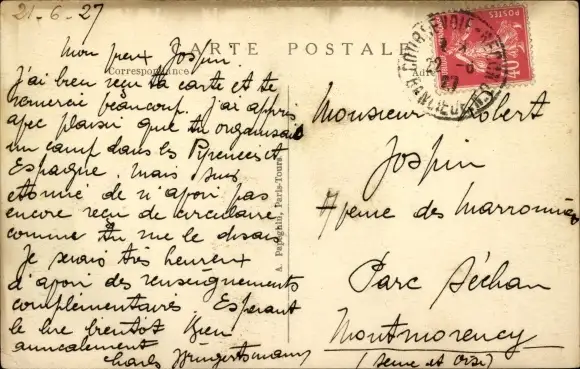 21-6-27
CARTE POSTALE
Correspondance
Mon vieux Jospin
J'ai bien reçu ta carte et te
remercie beaucoup. J'ai appris
avec plaisir que tu organisais
un camp dans les Pyrenees et
Espagne. Mais suis
etonné de n'avoir pas
encore reçu de circulaire
comme tu me le disais
Je serais très heureux
d'avoir des renseignements
complémentaires. Esperant
le lire bientot Bien
amicalement
Charles
A. Papeghin, Paris-Tours
COURBEVOIE
22 -6
27
POSTES
Monsieur Robert
Jospin
Avenue des Marronniers
Parc Séchan
Montmorency
(Seine et Oise)